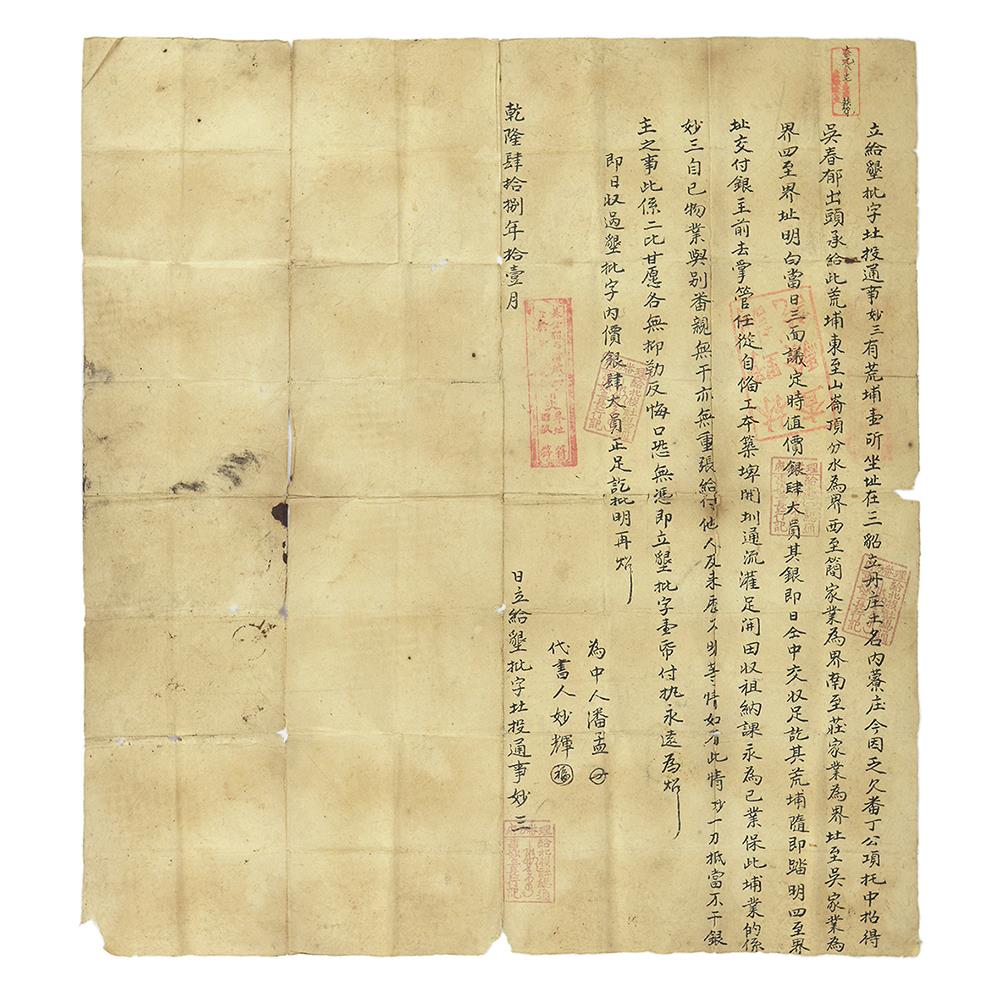 立給墾批字北投通事妙三有荒埔壹所坐址在三貂立丹庄土名內藔庄今因乏欠番丁公項托中招得
吳春郁出頭承給此荒埔東至山崙頂分水為界西至簡家業為界南至莊家業為界北至吳家業為
界四至界址明白當日三面議定時值價銀肆大員其銀即日仝中交收足訖其荒埔隨即踏明四至界
址交付銀主前去掌管任從自俻工本築埤開圳通流灌足開田收租納課永為己業保此埔業的係
妙三自己物業與別番親無干亦無重張給付他人及來歷不明等情如有此情妙一力抵當不干銀
主之事此係二比甘愿各無抑勒反悔口恐無憑即立墾批字壹帋付执永遠為炤
即日收過墾批字內價銀肆大員正足訖批明再炤
為中人潘孟
代書人妙輝 福
乾隆肆拾捌年拾壹月 日立給墾批字北投通事妙三